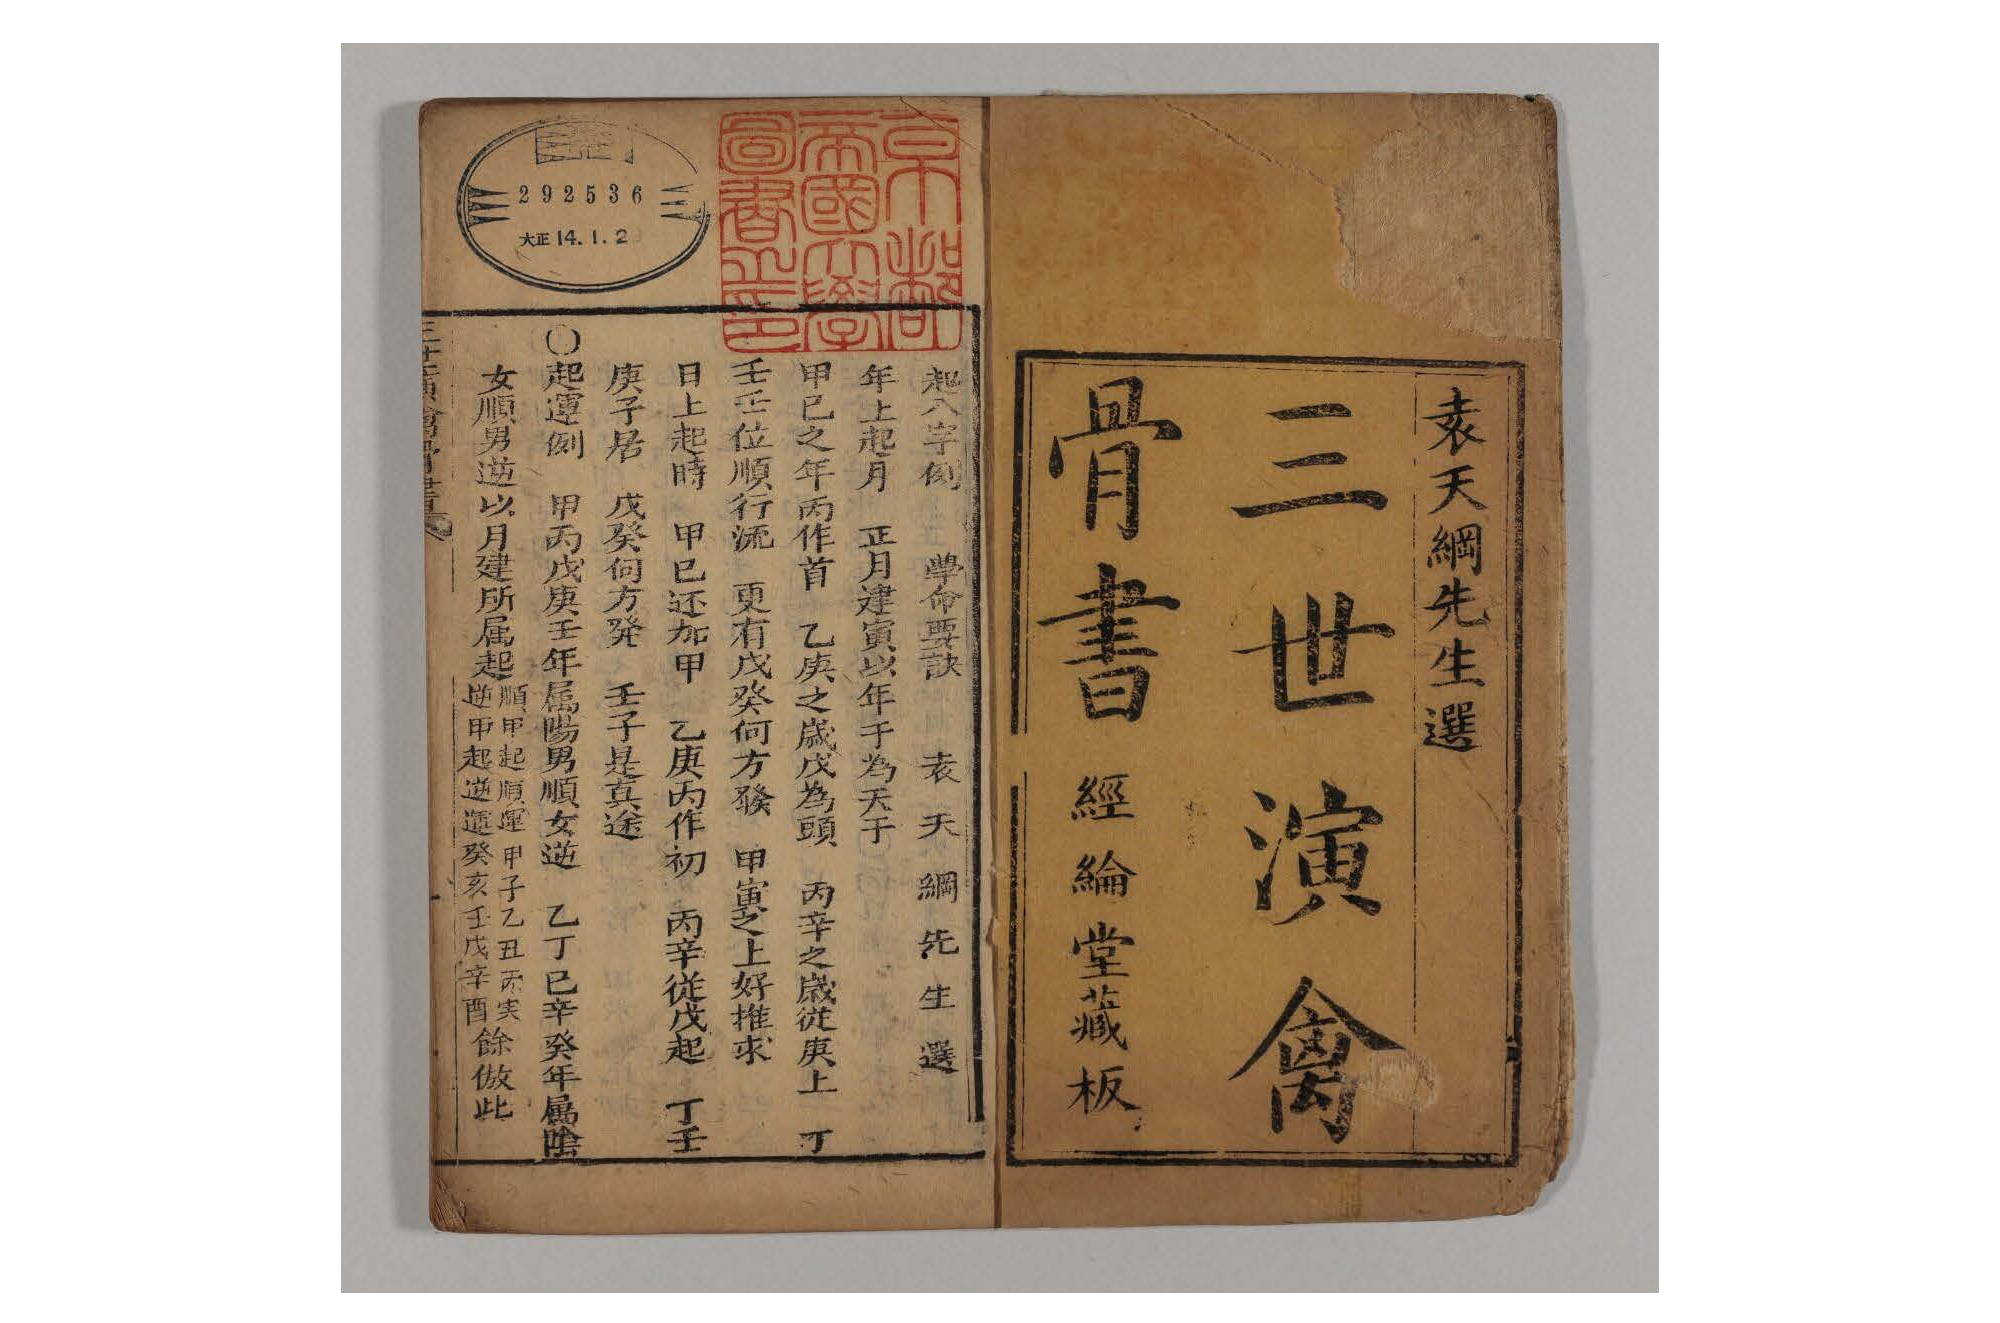 袁天綱先生選
三世演禽
骨書
經綸堂藏板
京都
帝國大學
圖書之印
292536
大正14.1.2
起八字例 學命要訣 袁天綱先生選
年上起月 正月建寅以年干為天干
甲已之年丙作首 乙庚之歲戊為頭 丙辛之歲從庚上 丁
壬壬位順行流 更有戊癸何方發 甲寅之上好推求
日上起時 甲已还加甲 乙庚丙作初 丙辛從戊起 丁壬
庚子居 戊癸何方発 壬子是真途
〇起運例 甲丙戊庚壬年属陽男順女逆 乙丁已辛癸年属陰
女順男逆以月建所属起
順甲起順運甲子乙丑丙寅
逆甲起逆運癸亥壬戌辛酉
餘倣此